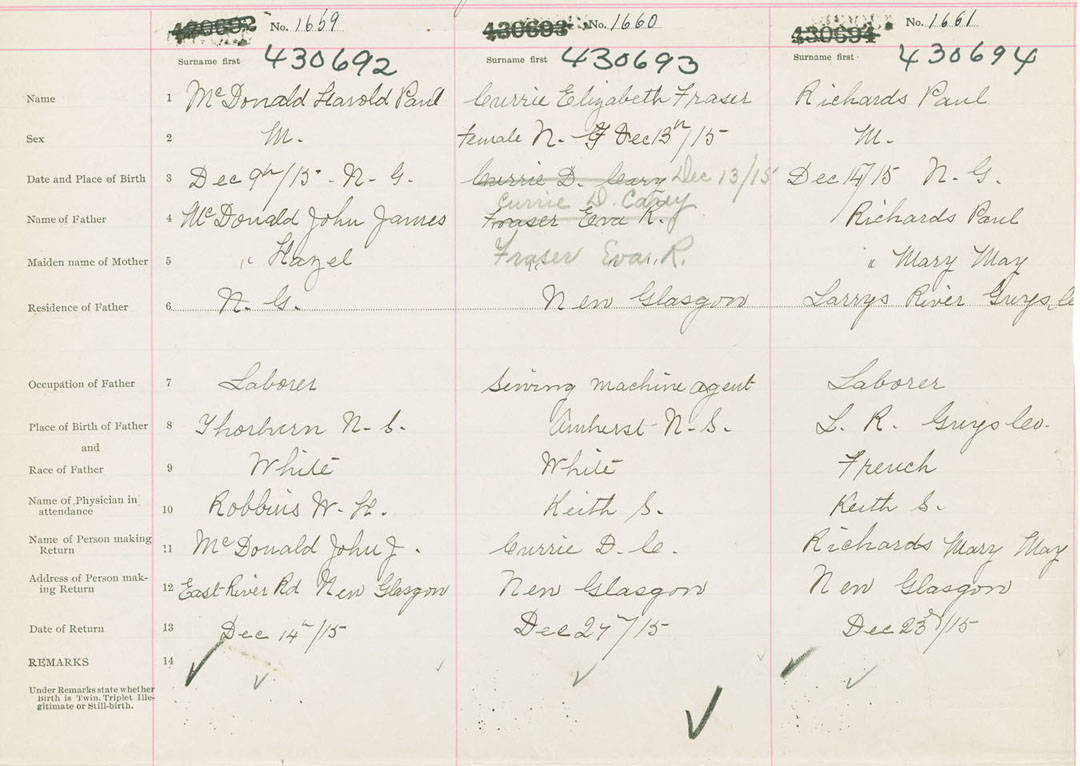 430692 No. 1659 430693 No. 1660 430694 No. 1661
Surname first 430692 Surname first 430693 Surname first 430694
Name 1 McDonald Harold Paul Currie Elizabeth Fraser Richards Paul
Sex 2 M. Female N. G Dec 13th/15 M.
Date and Place of Birth 3 Dec 9th/15 - N. G. Currie D. Cary Dec 13/15 Dec 14/15 N. G.
Currie D. Carey
Name of Father 4 McDonald John James Fraser Eva R. Richards Paul
Maiden name of Mother 5 " Hazel Fraser Eva R. " Mary May
Residence of Father 6 N. G. New Glasgow Larrys River Guys Co
Occupation of Father 7 Laborer Sewing machine agent Laborer
Place of Birth of Father 8 Thorburn N. S. Amherst N. S. L. R. Guys Co.
and
Race of Father 9 White White French
Name of Physician in
attendance 10 Robbins W. H. Keith S. Keith S.
Name of Person making
Return 11 McDonald John J. Currie D. C. Richards Mary May
Address of Person mak-
ing Return 12 East River Rd New Glasgow New Glasgow New Glasgow
Date of Return 13 Dec 14th/15 Dec 27/15 Dec 23rd/15
REMARKS 14
Under Remarks state whether
Birth is Twin, Triplet Ille-
gitimate or Still-birth.